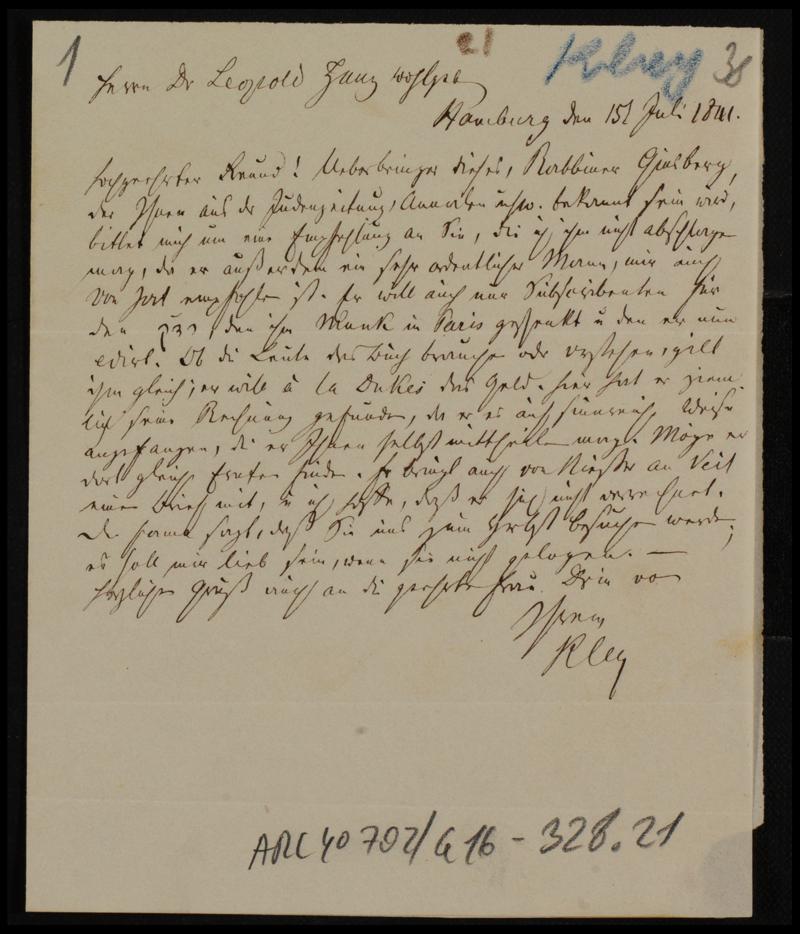 1
21
Kley
38
Herrn Dr Leopold Zunz wohlgeb
Hamburg den 15t Juli 1841.
Hochgeehrter Freund! Ueberbringer dieses, Rabbiner Ginsberg,
der Ihnen aus der Judenzeitung, Annalen usw. bekannt sein wird,
bittet mich um eine Empfehlung an Sie, die ich ihm nicht abschlagen
mag, da er außerdem ein sehr ordentlicher Mann, mir auch
von empfohlen ist. Er will auch nur Subscribenten für
den den ihm Munk in Paris geschenkt u den er nun
edirt. Ob die Leute das Buch brauchen oder verstehen, gilt
ihm gleich; er will à la Dukes das Geld. Hier hat er ziem
lich seine Rechnung gefunden, da er es auf sinnreiche Weise
angefangen, die er Ihnen selbst mittheilen mag. Möge er
dort gleiche Ernte finden. Er bringt auch von Riesser an Veit
einen Brief mit, u ich hoffe, daß er sich nicht verrechnet.
Die Fama sagt, daß Sie uns zum Herbst besuchen werden;
es soll mir lieb sein, wenn sie nicht gelogen. —
Herzlichen Gruß auch an die geehrte Frau von
Ihrem
Kley
ARC 4o 792/G16 - 328.21